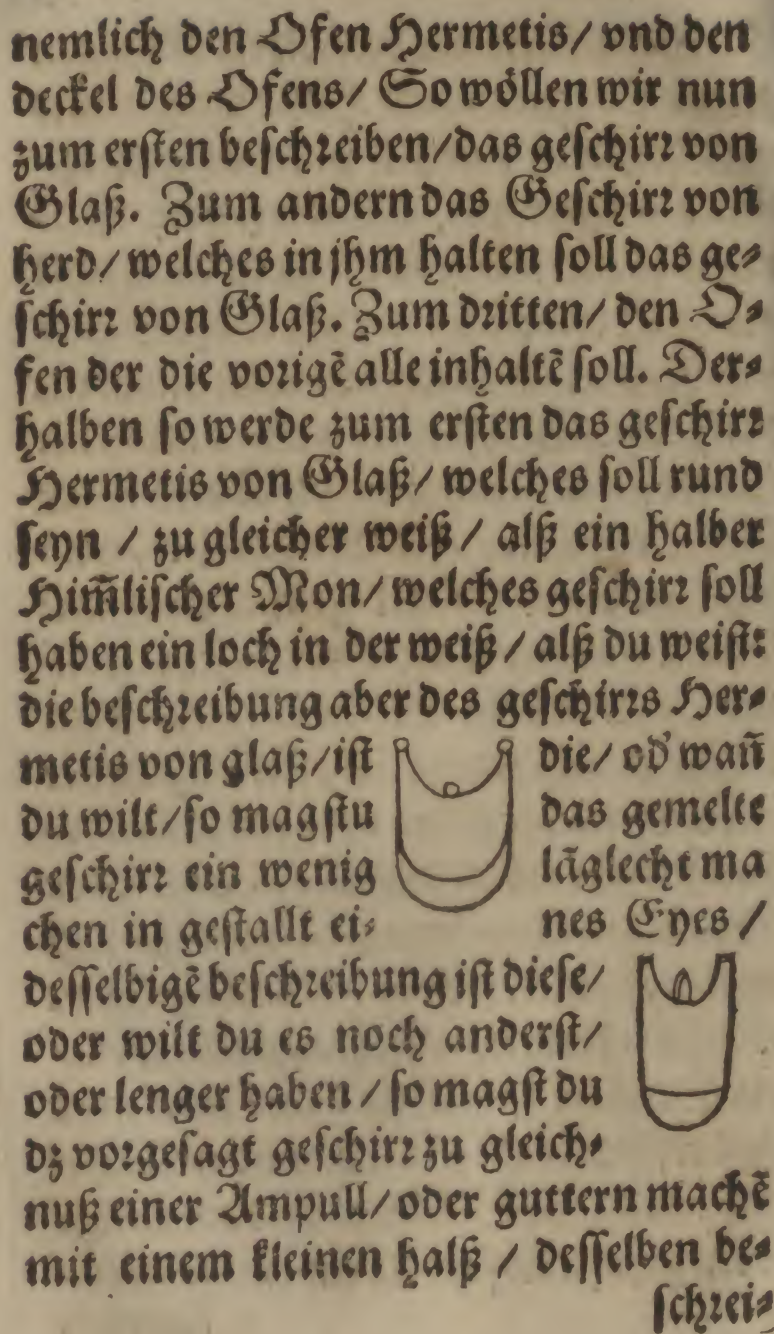 nemlich den Ofen Hermetis/ vnd den
deckel des Ofens/ So wöllen wir nun
zum ersten beschꝛeiben/das geschirꝛ von
Glaß. Zum andern das Geschirꝛ von
herd/ welches in jhm halten soll das ge⸗
schirꝛ von Glaß. Zum dꝛitten/ den O⸗
fen der die voꝛigē alle inhaltē soll. Der⸗
halben so werde zum ersten das geschirꝛ
Hermetis von Glaß/ welches soll rund
seyn / zu gleicher weiß / alß ein halber
Him̄lischer Mon/ welches geschirꝛ soll
haben ein loch in der weiß / alß du weist:
die beschꝛeibung aber des geschirꝛs Her⸗
metis von glaß/ist die/ od̕ wañ
du wilt/so magstu das gemelte
geschirꝛ ein wenig lāglecht ma
chen in gestallt ei⸗ nes Eyes /
desselbigē beschꝛeibung ist diese/
oder wilt du es noch anderst/
oder lenger haben / so magst du
dz voꝛgesagt geschirꝛ zu gleich⸗
nuß einer Ampull/ oder guttern machē
mit einem kleinen halß / desselben be⸗
schꝛei⸗